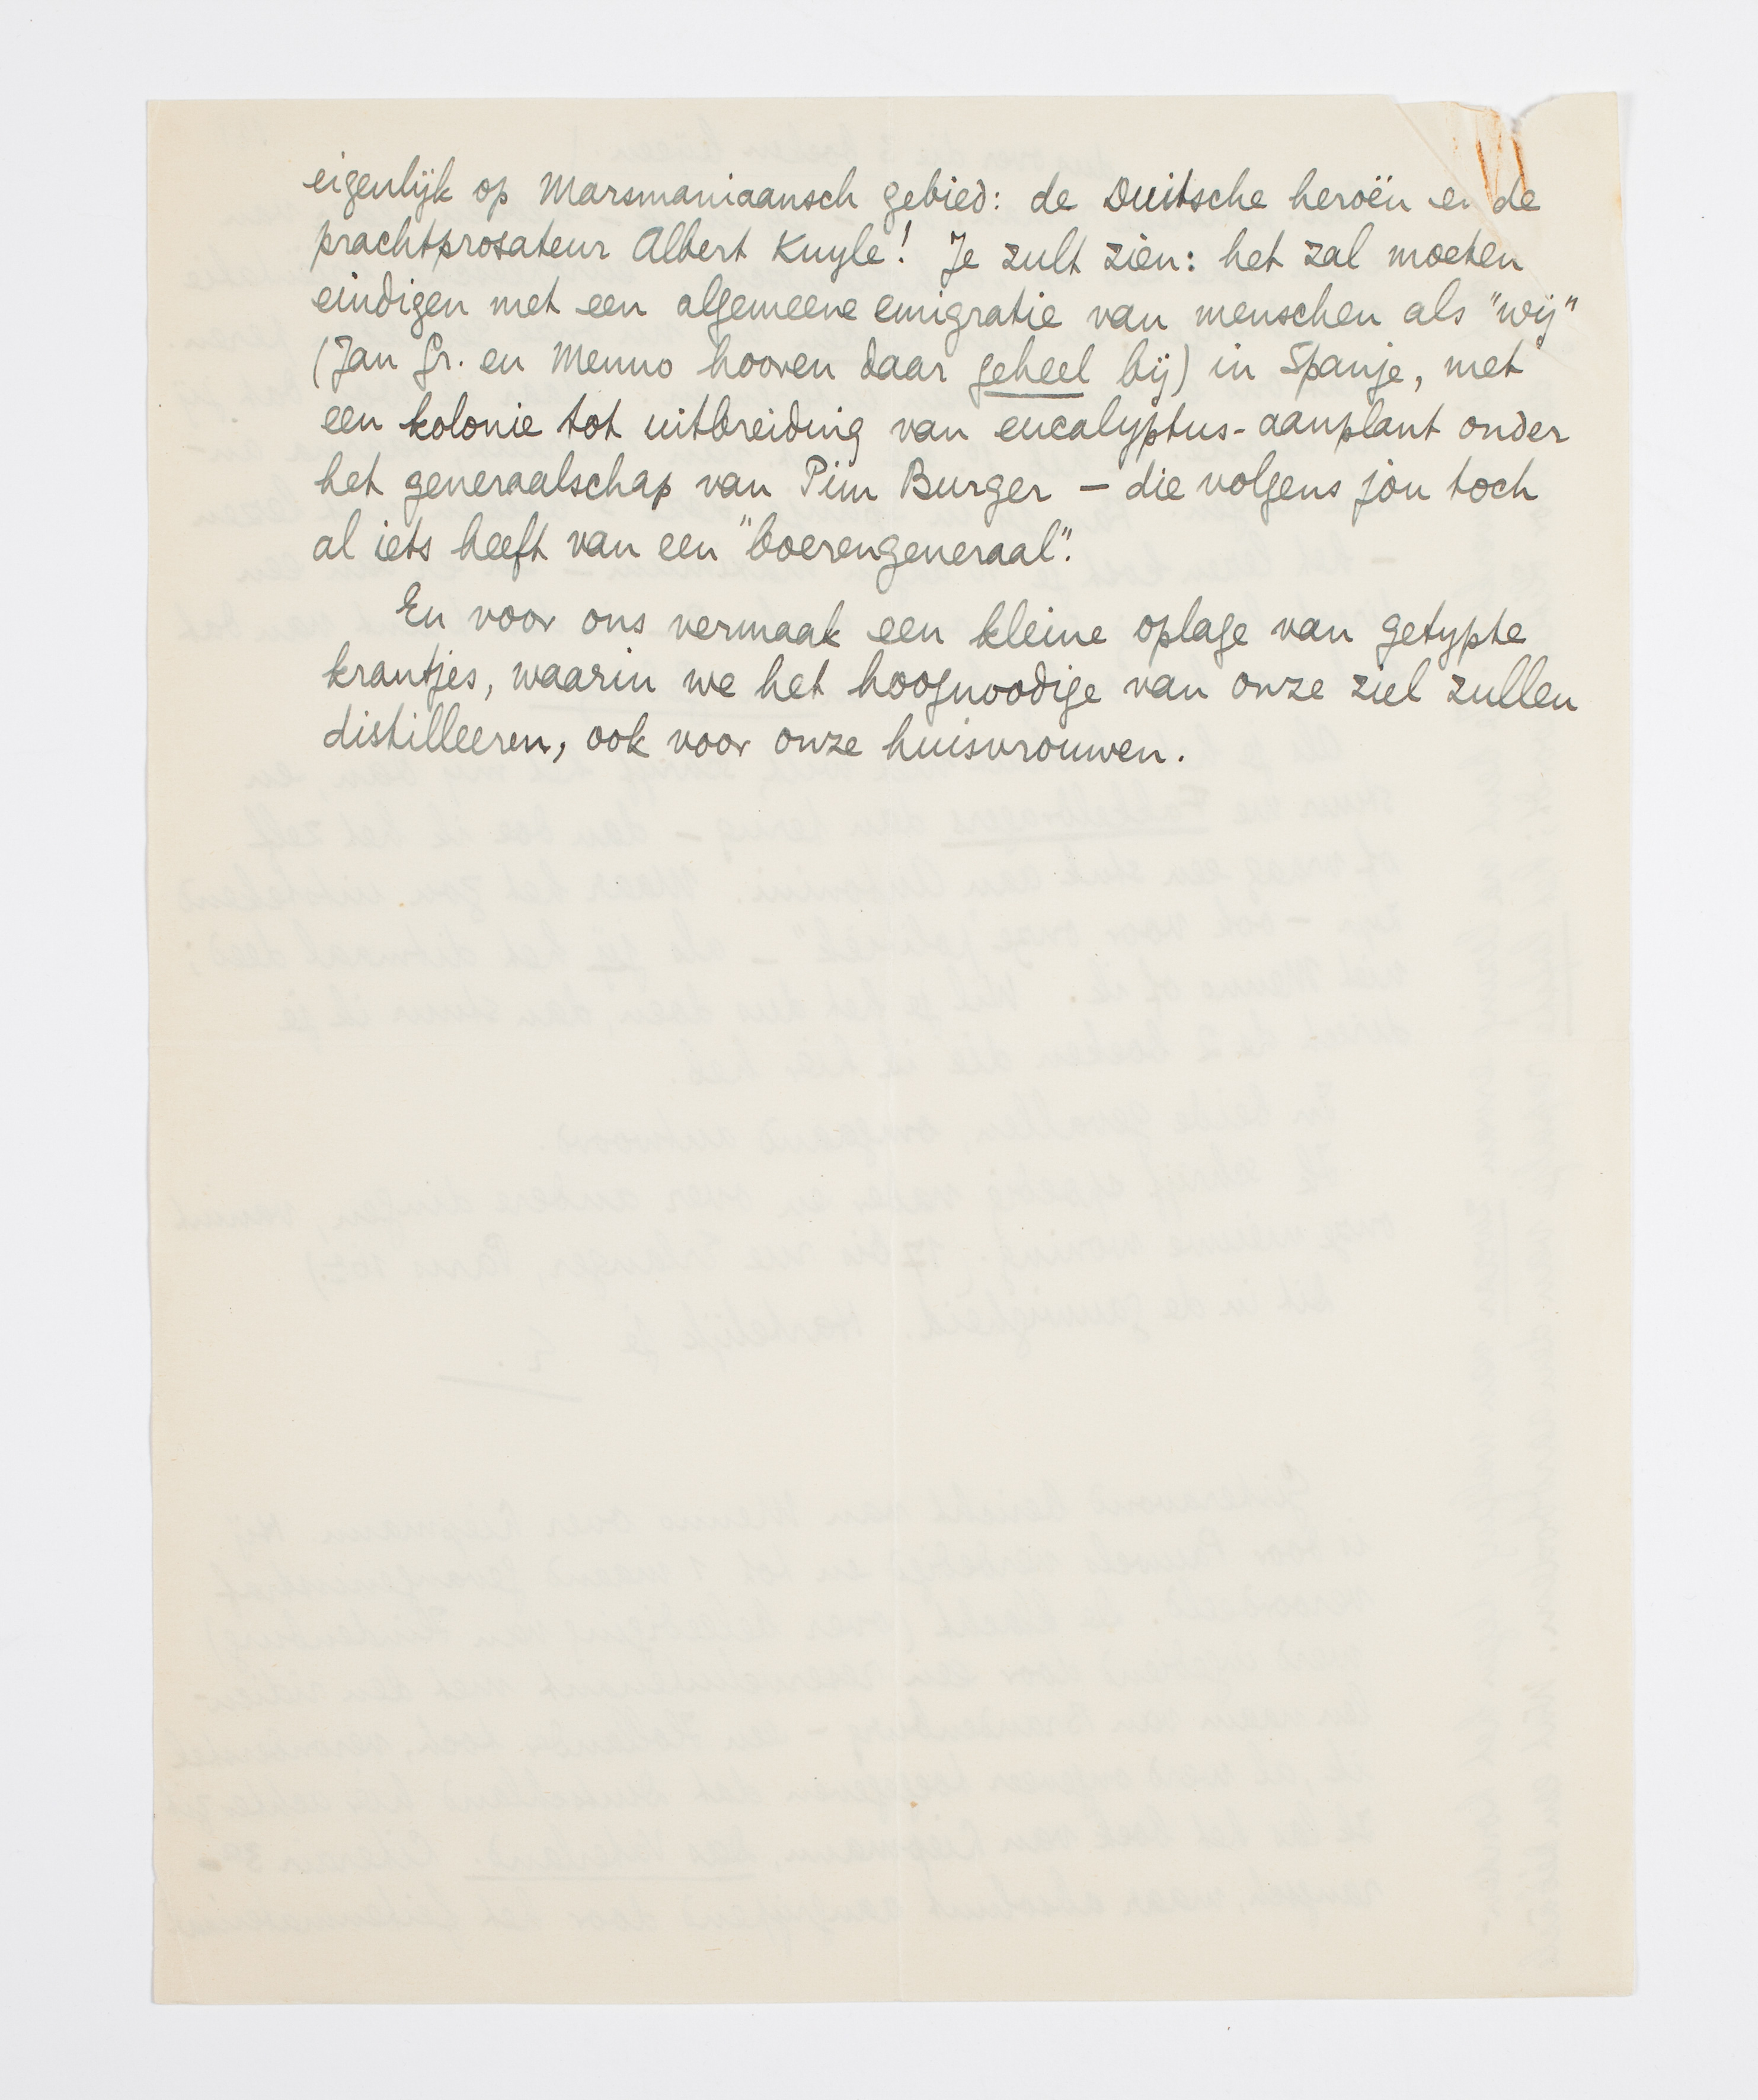 eigenlijk op Marsmaniaansch gebied: de Duitsche heroën en de
prachtprosateur Albert Kuyle! Je zult zien: het zal moeten
eindigen met een algemeene emigratie van menschen als "wij"
(Jan Gr. en Menno hooren daar geheel bij) in Spanje, met
een kolonie tot uitbreiding van eucalyptus-aanplant onder
het generaalschap van Pim Burger – die volgens jou toch
al iets heeft van een "boerengeneraal".
En voor ons vermaak een kleine oplage van getypte
krantjes, waarin we het hoognoodige van onze ziel zullen
distilleeren, ook voor onze huisvrouwen.